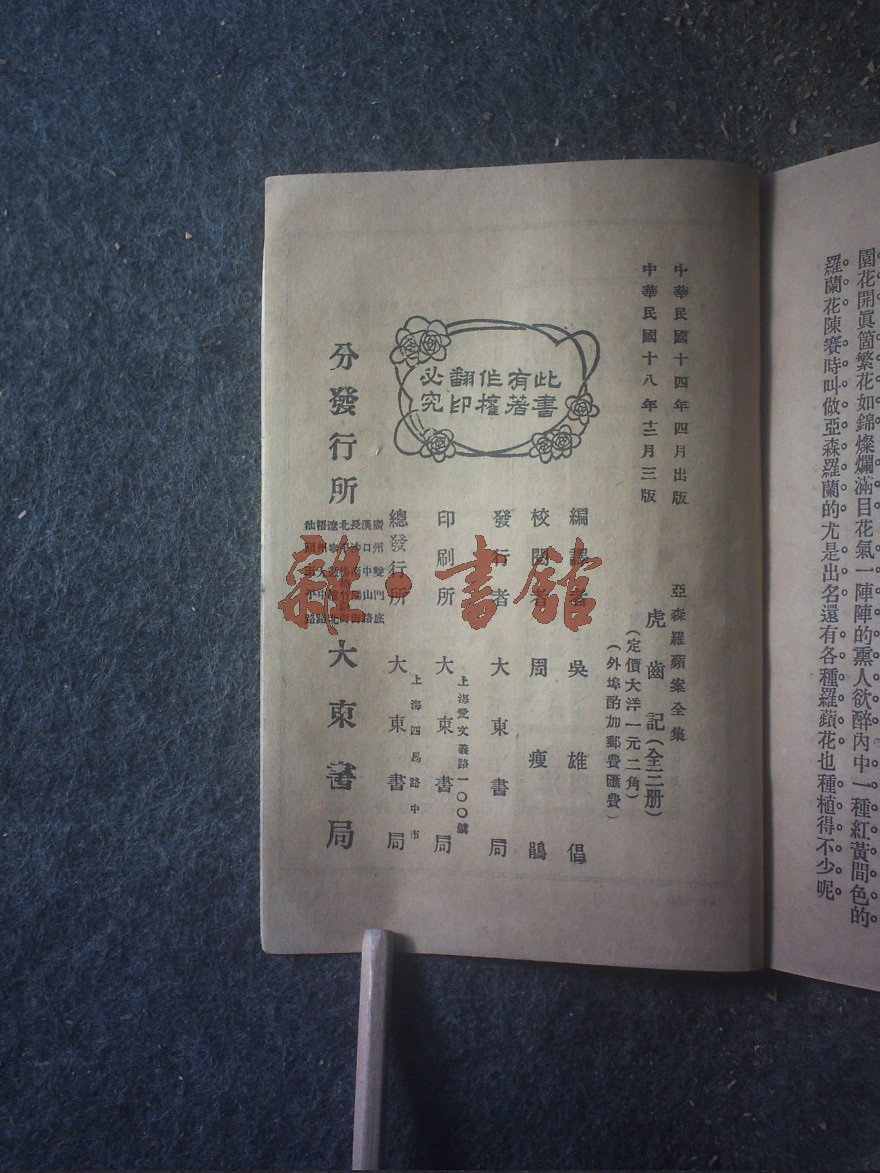 園花開眞箇繁花如錦燦爛滿目花氣一陣陣的熏人欲醉內中一種紅黃間色的
羅蘭花陳賽時叫做亞森羅蘭的尤是出名還有各種羅蘋花也種植得不少呢。
中華民國十四年四月出版
中華民國十八年十二月三版
亞森羅蘋案全集
虎齒記(全三册)
(定價大洋一元二角)
(外埠酌加郵費匯費)
此書
有著
作權
翻印
必究
編譯者 吳雄倡
校閱者 周瘦鵑
發行者 大東書局
上海愛文義路一〇〇號
印刷所 大東書局
上海四馬路中市
總發行所 大東書局
分發行所 大東書局
雜·書館